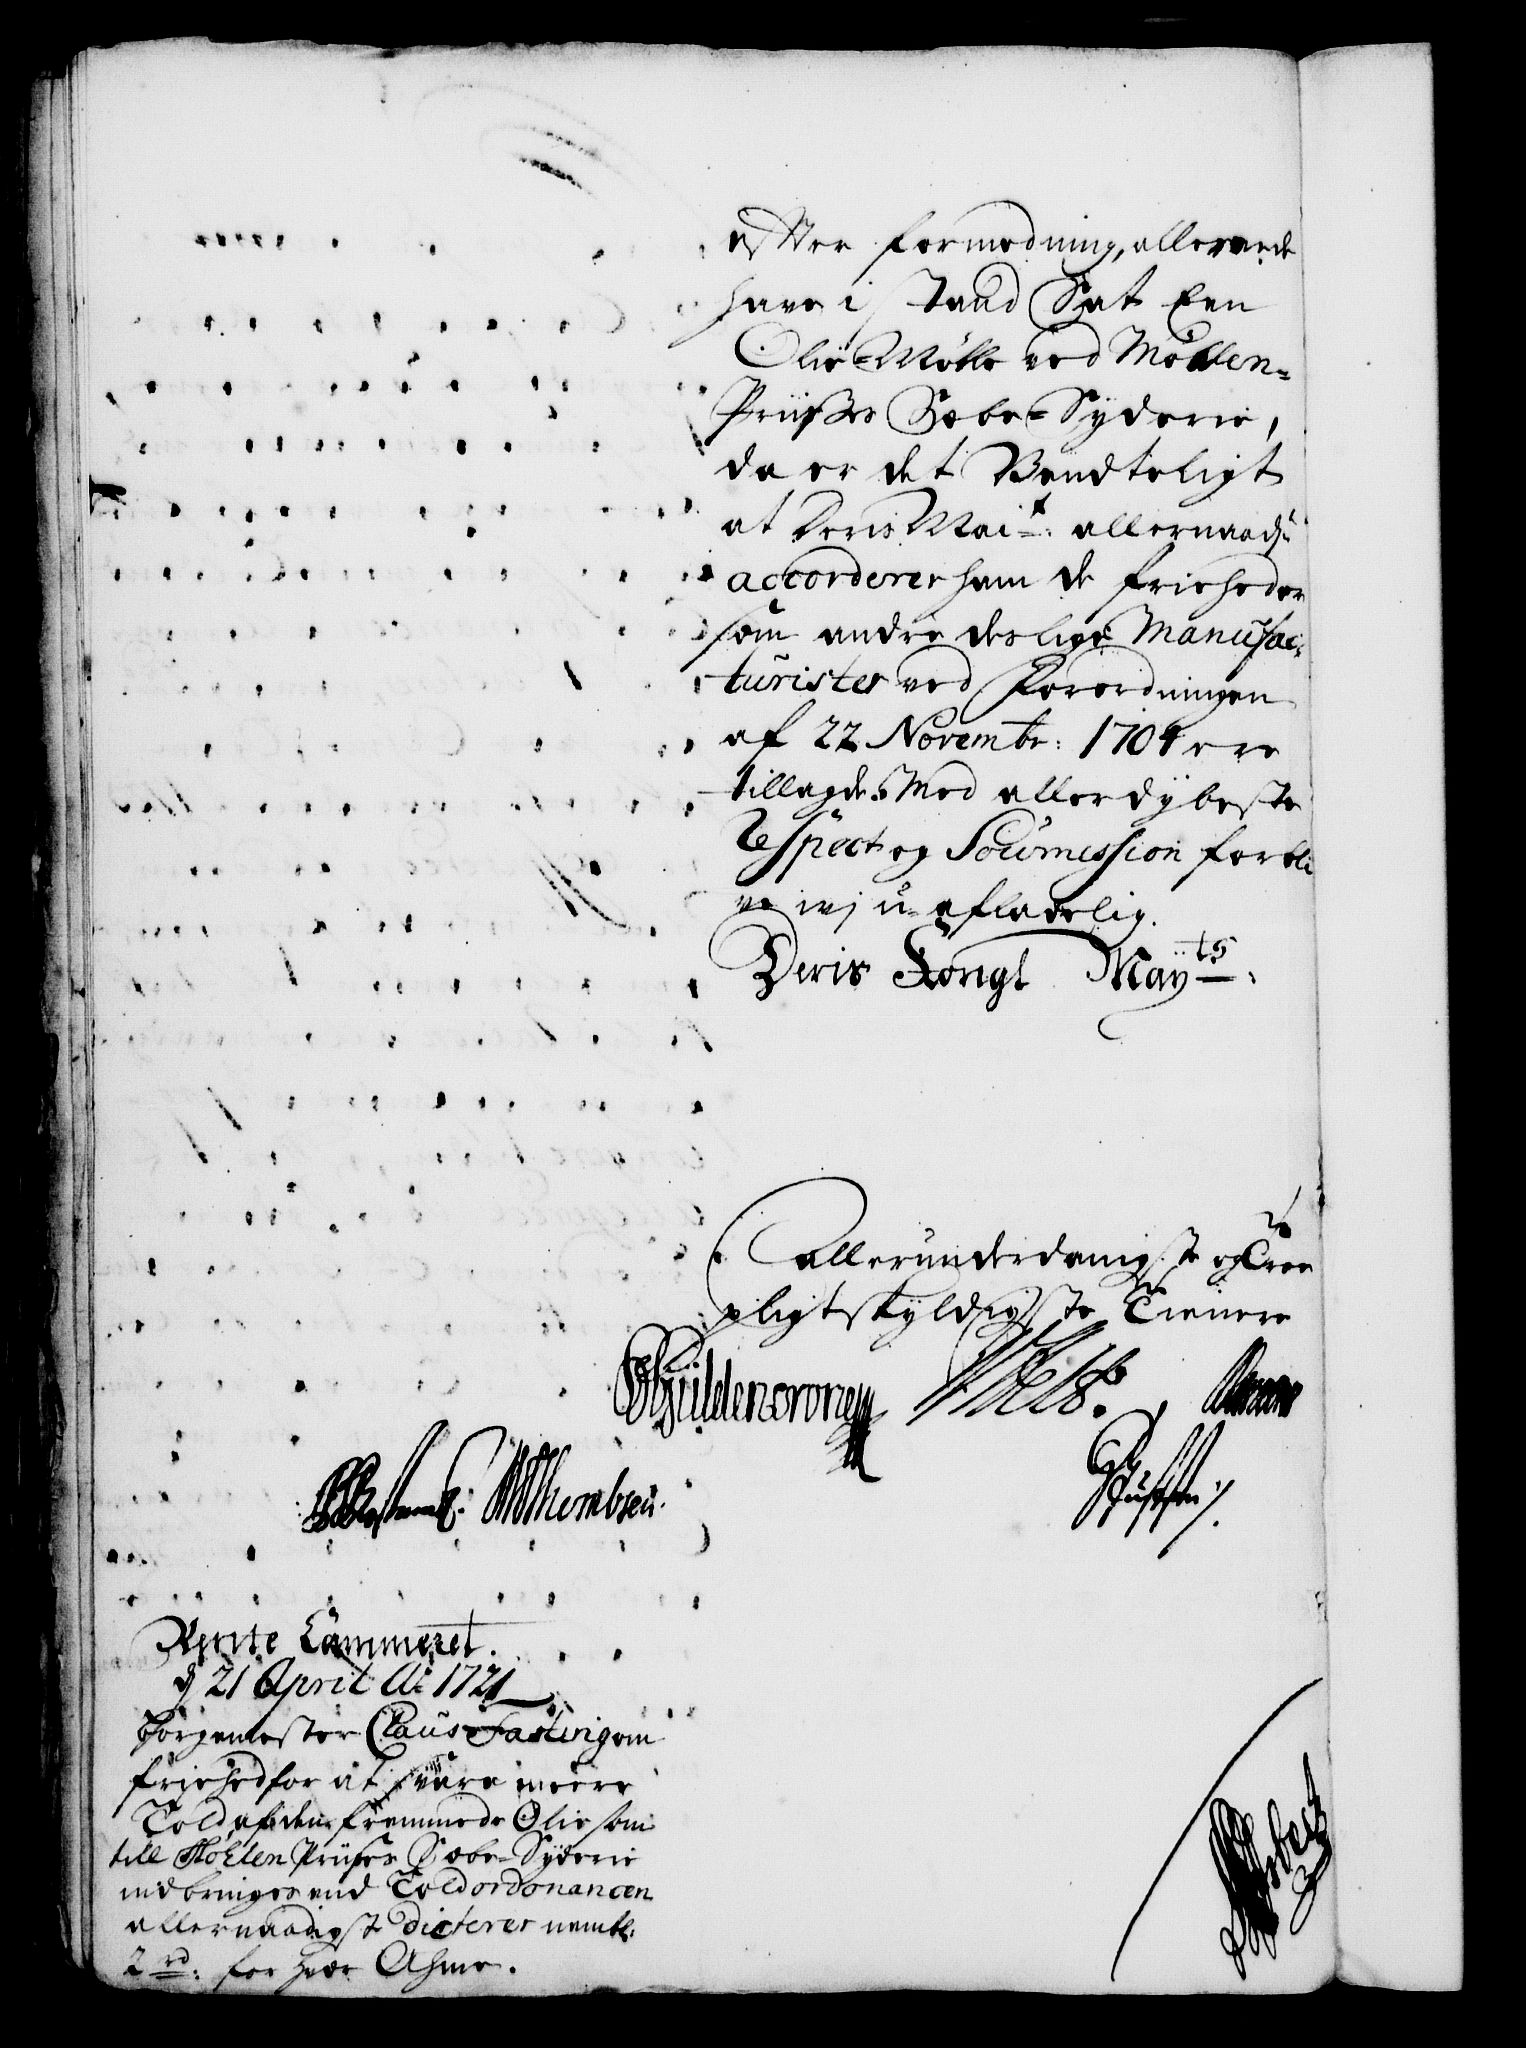 efter formodning, allereede
have i stand Sat Een
Olie-Mølle ved Møllen-
Prüßes Sæbe-Syderie,
da er det Vendteligt
at Deris Mai.t: allernaadst
accorderer ham de friheder
som andre deslige Manufac-
turister ved Forordningen
af 22 Novembr: 1704 ere
tillagde. Med allerdybeste
Respect og Soumission forbli
ve wj u-afladelig.
Deris Kongl May.ts:
allerunderdanigste og Troe
pligtskyldigste Tienere
Güldencrone
WThombsen.
Rente Cammeret.
d 21 April Ao 1721
Borgemester Claus Fasting om
friehed for at svare meere
Told af den fremmede Olie som
till Møllen Prüses Sæbe-Syderie
indbringes end Toldordonancen
allernaadigst dicterer nembl:
2 rd: for hver Ahme.